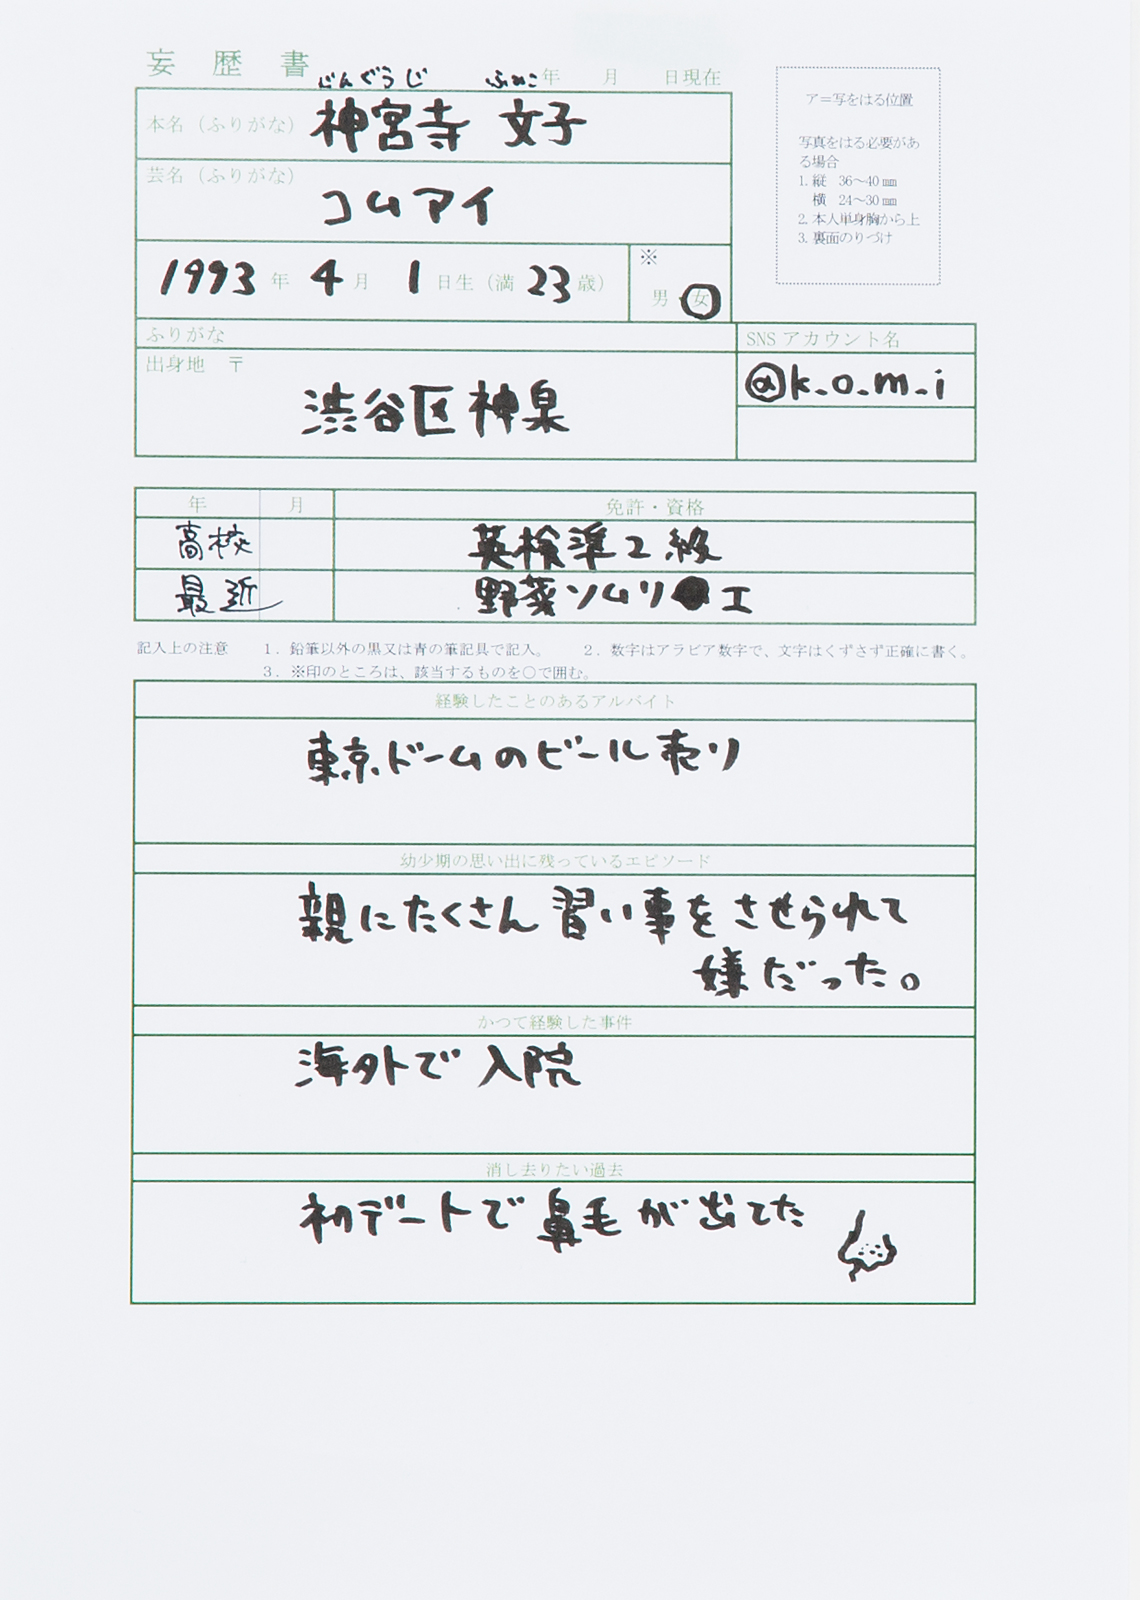 妄 歴 書
じんぐうじ ふみこ 年 月 日現在
本名（ふりがな） 神宮寺 文子
芸名（ふりがな） コムアイ
1993 年 4 月 1 日生（満 23 歳）
※
男 女
ア＝写をはる位置
写真をはる必要があ
る場合
1. 縦 36～40 ㎜
横 24～30 ㎜
2. 本人単身胸から上
3. 裏面のりづけ
ふりがな
出身地 〒
渋谷区神泉
SNS アカウント名
@k_o_m_i
年 月 免許・資格
高校 英検準2級
最近 野菜ソムリエ
記入上の注意 1．鉛筆以外の黒又は青の筆記具で記入。 2．数字はアラビア数字で、文字はくずさず正確に書く。
3．※印のところは、該当するものを○で囲む。
経験したことのあるアルバイト
東京ドームのビール売り
幼少期の思い出に残っているエピソード
親にたくさん習い事をさせられて
嫌だった。
かつて経験した事件
海外で入院
消し去りたい過去
初デートで鼻毛が出てた